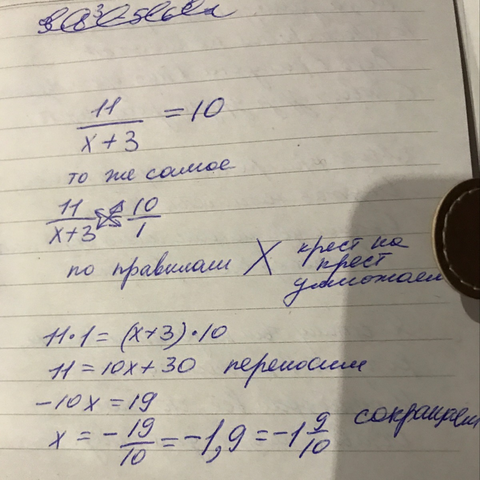 11/(x+3) = 10
то же самое
11/(x+3) = 10/1
по правилам X крест на крест умножаем
11·1 = (x+3)·10
11 = 10x + 30 переносим
-10x = 19
x = -19/10 = -1,9 = -1 9/10 сокращаем